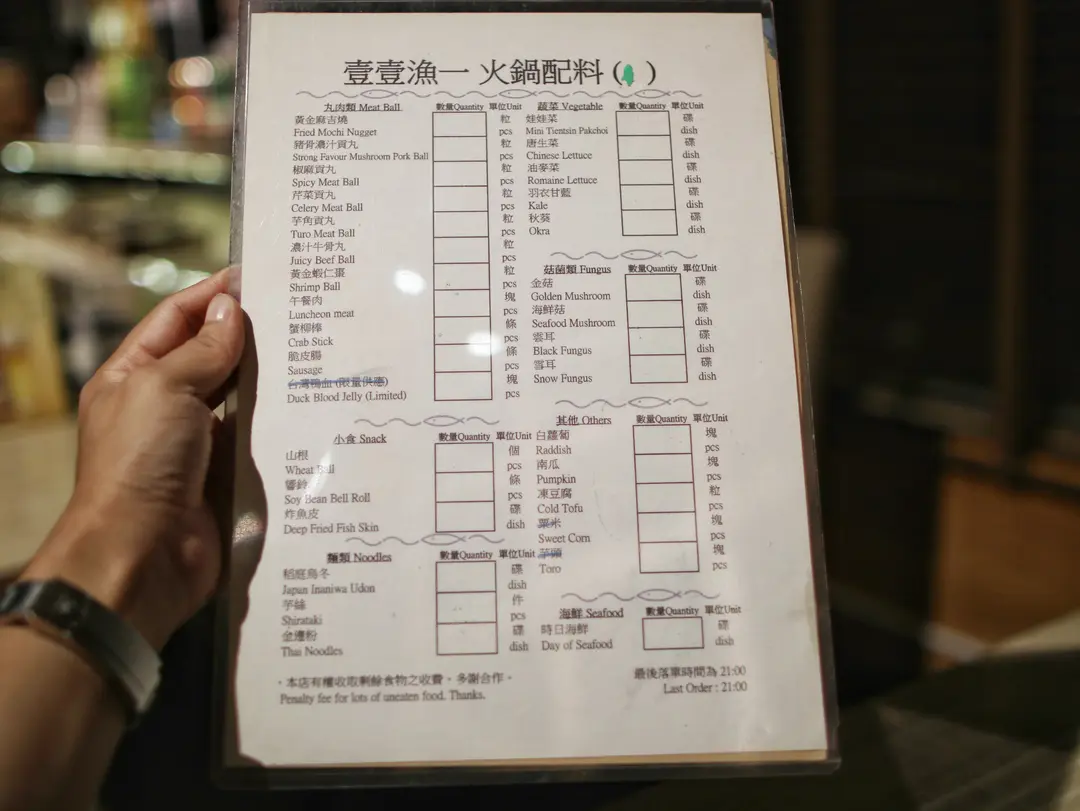 壹壹漁一 火鍋配料 ( )
丸肉類 Meat Ball 數量Quantity 單位Unit
黃金麻吉燒 粒
Fried Mochi Nugget pcs
豬骨濃汁貢丸 粒
Strong Favour Mushroom Pork Ball pcs
椒麻貢丸 粒
Spicy Meat Ball pcs
芹菜貢丸 粒
Celery Meat Ball pcs
芋角貢丸 粒
Turo Meat Ball pcs
濃汁牛骨丸 粒
Juicy Beef Ball pcs
黃金蝦仁棗 粒
Shrimp Ball pcs
午餐肉 塊
Luncheon meat pcs
蟹柳棒 條
Crab Stick pcs
脆皮腸 條
Sausage pcs
台灣鴨血 (限量供應) 塊
Duck Blood Jelly (Limited) pcs
小食 Snack 數量Quantity 單位Unit
山根 個
Wheat Ball pcs
響鈴 條
Soy Bean Bell Roll pcs
炸魚皮 碟
Deep Fried Fish Skin dish
麵類 Noodles 數量Quantity 單位Unit
稻庭烏冬 碟
Japan Inaniwa Udon dish
芋絲 件
Shirataki pcs
金邊粉 碟
Thai Noodles dish
蔬菜 Vegetable 數量Quantity 單位Unit
娃娃菜 碟
Mini Tientsin Pakchoi dish
唐生菜 碟
Chinese Lettuce dish
油麥菜 碟
Romaine Lettuce dish
羽衣甘藍 碟
Kale dish
秋葵 碟
Okra dish
菇菌類 Fungus 數量Quantity 單位Unit
金菇 碟
Golden Mushroom dish
海鮮菇 碟
Seafood Mushroom dish
雲耳 碟
Black Fungus dish
雪耳 碟
Snow Fungus dish
其他 Others 數量Quantity 單位Unit
白蘿蔔 塊
Raddish pcs
南瓜 塊
Pumpkin pcs
凍豆腐 粒
Cold Tofu pcs
粟米 塊
Sweet Corn pcs
芋頭 塊
Toro pcs
海鮮 Seafood 數量Quantity 單位Unit
時日海鮮 碟
Day of Seafood dish
・本店有權收取剩餘食物之收費，多謝合作。
Penalty fee for lots of uneaten food. Thanks.
最後落單時間為 21:00
Last Order : 21:00